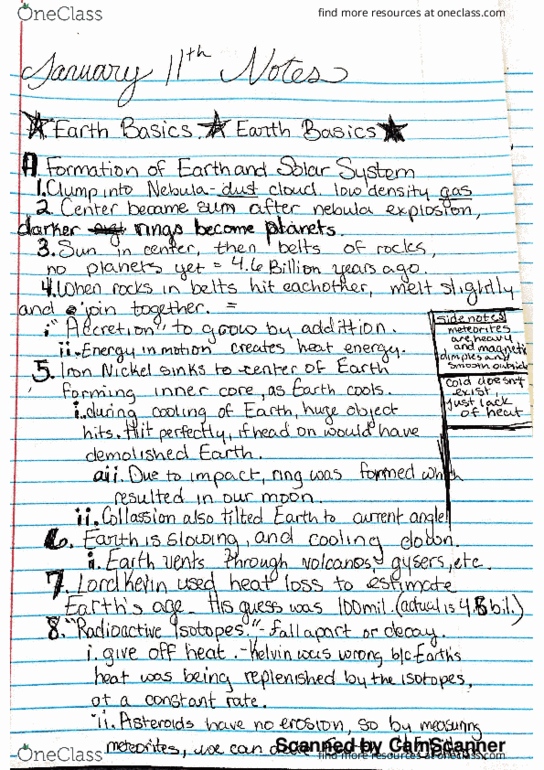 OneClass
find more resources at oneclass.com
January 11th Notes
Earth Basics Earth Basics
A Formation of Earth and Solar System
1. Clump into Nebula- dust cloud low density gas
2. Center became sum after nebula explosion,
darker rings become planets.
3. Sun in center, then belts of rocks,
no planets yet = 4.6 Billion years ago.
4. When rocks in belts hit eachother, melt slightly
and join together. =
i. "Accretion" to grow by addittion.
ii. Energy in motion creates heat energy.
side notes
meteorites
are heavy
and magnetic
dimples and
smooth outside
cold doesn't
exist,
just lack
of heat
5. Iron Nickel sinks to center of Earth
forming inner core, as Earth cools.
i. during cooling of Earth, huge object
hits. Hit perfectly, if head on would have
demolished Earth.
aii. Due to impact, ring was formed which
resulted in our moon.
ii. Collassion also tilted Earth to current angle
6. Earth is slowing, and cooling down.
i. Earth vents through volcanos, gysers, etc.
7. Lord Kelvin used heat loss to estimate
Earth's age. His guess was 100mil. (actual is 4.6 bil.)
8. "Radioactive Isotopes" - fall apart or decay.
i. give off heat. - Kelvin was wrong b/c Earth's
heat was being replenished by the isotopes,
at a constant rate.
ii. Asteroids have no erosion, so by measuring
meteorites, we can
Scanned by CamScanner
OneClass
find more resources at oneclass.com